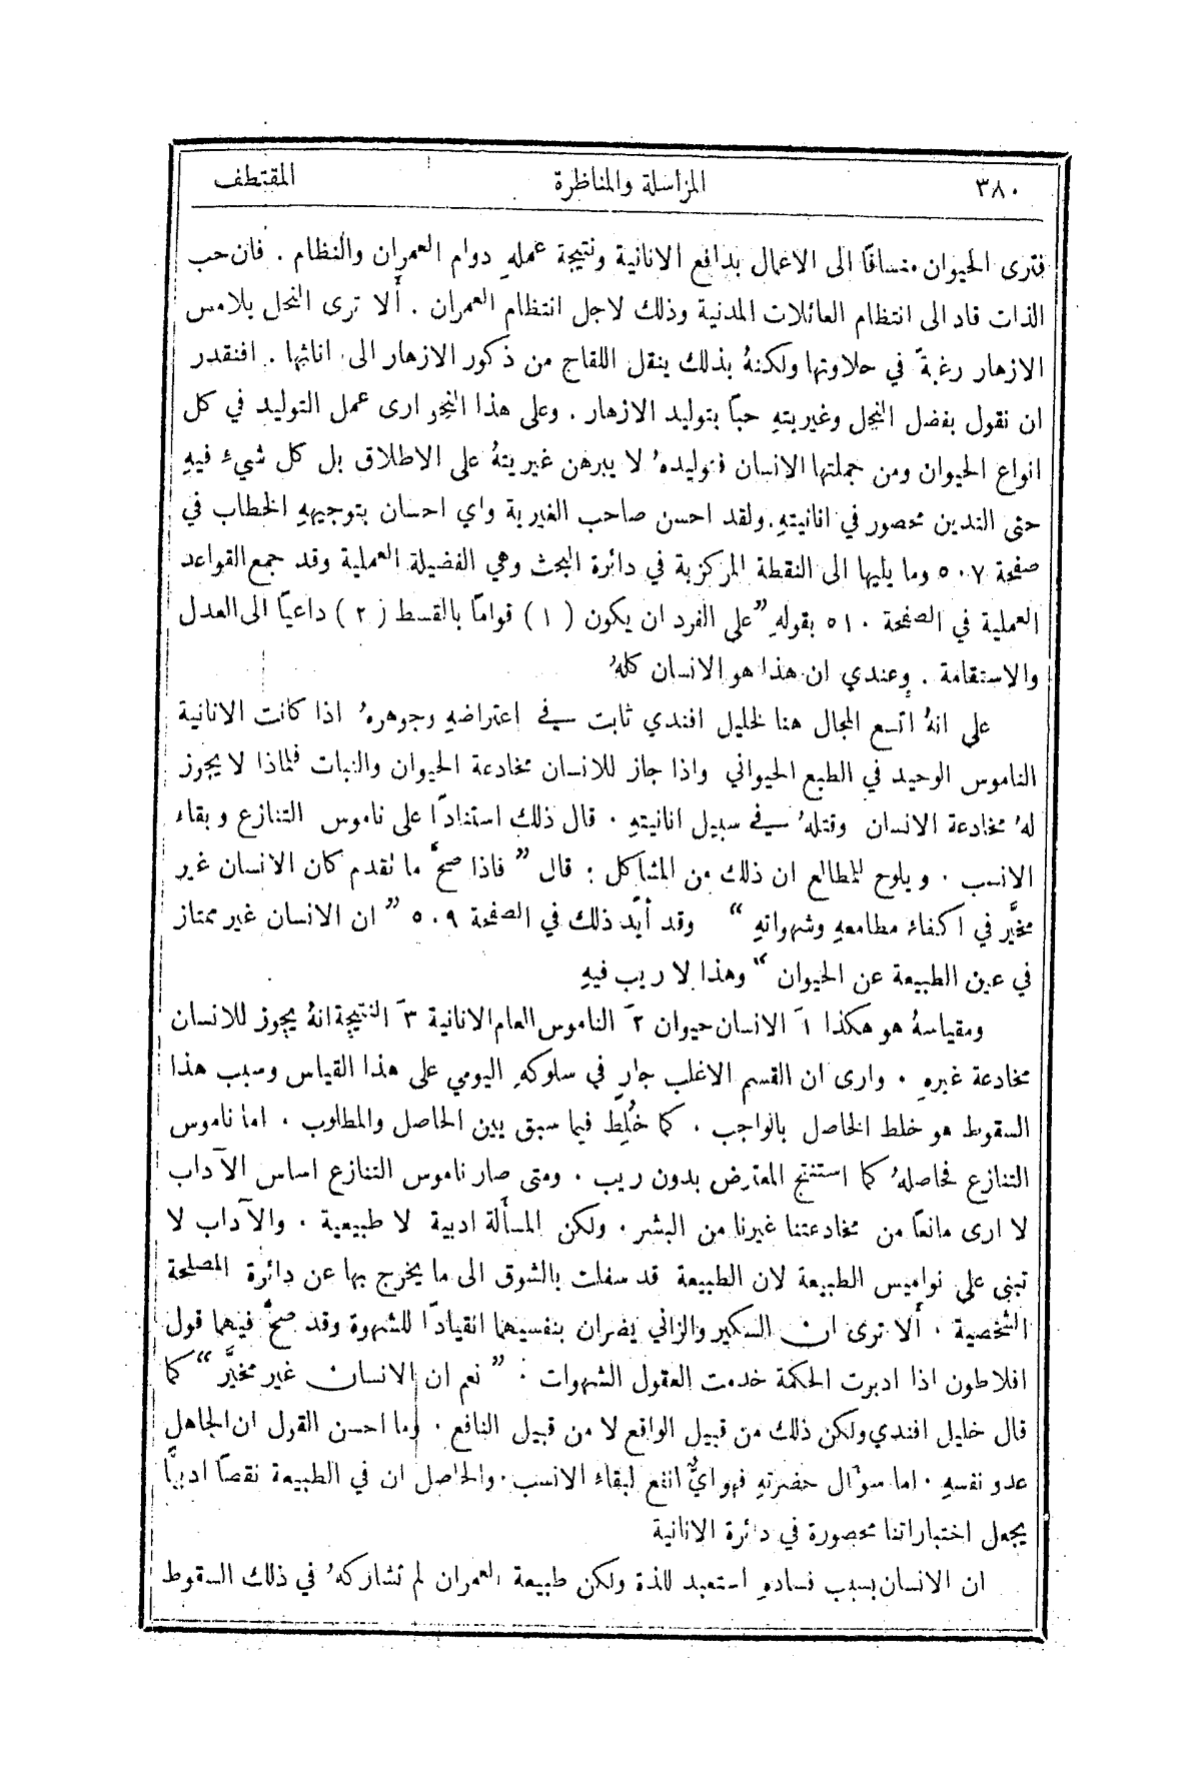 ٣٨٠ المراسلة والمناظرة المقتطف
فترى الحيوان منساقًا الى الاعمال بدافع الانانية ونتيجة عملهِ دوام العمران والنظام . فان حب
الذات قاد الى انتظام العائلات المدنية وذلك لاجل انتظام العمران . أَلا ترى النحل يلامس
الازهار رغبةً في حلاوتها ولكنهُ بذلك ينقل اللقاح من ذكور الازهار الى اناثها . افنقدر
ان نقول بفضل النحل وغيريتهِ حبًّا بتوليد الازهار . وعلى هذا النحو ارى عمل التوليد في كل
انواع الحيوان ومن جملتها الانسان فتوليدهُ لا يبرهن غيريتهُ على الاطلاق بل كل شيءٍ فيهِ
حتى التدين محصور في انانيتهِ. ولقد احسن صاحب الغيرية واي احسان بتوجيههِ الخطاب في
صفحة ٥٠٧ وما يليها الى النقطة المركزية في دائرة البحث وهي الفضيلة العملية وقد جمع القواعد
العملية في الصفحة ٥١٠ بقولهِ ”على الفرد ان يكون (١) قوامًا بالقسط (٢) داعيًا الى العدل
والاستقامة . وعندي ان هذا هو الانسان كلهُ
على انهُ اتسع المجال هنا لخليل افندي ثابت في اعتراضهِ وجوهرهُ اذا كانت الانانية
الناموس الوحيد في الطبع الحيواني واذا جاز للانسان مخادعة الحيوان والنبات فلماذا لا يجوز
لهُ مخادعة الانسان وقتلهُ في سبيل انانيتهِ . قال ذلك استنادًا على ناموس التنازع وبقاء
الانسب . ويلوح للمطالع ان ذلك من المشاكل : قال ” فاذا صحَّ ما تقدم كان الانسان غير
مخيَّر في اكفاء مطامعهِ وشهواتهِ “ وقد أيَّد ذلك في الصفحة ٥٠٩ ” ان الانسان غير ممتاز
في عين الطبيعة عن الحيوان “ وهذا لا ريب فيهِ
ومقياسهُ هو هكذا ١َ الانسان حيوان ٢َ الناموس العام الانانية ٣َ النتيجة انهُ يجوز للانسان
مخادعة غيرهِ . وارى ان القسم الاغلب جارٍ في سلوكهِ اليومي على هذا القياس وسبب هذا
السقوط هو خلط الحاصل بالواجب . كما خُلِط فيما سبق بين الحاصل والمطلوب . اما ناموس
التنازع فحاصلهُ كما استنتج المعترض بدون ريب . ومتى صار ناموس التنازع اساس الآداب
لا ارى مانعًا من مخادعتنا غيرنا من البشر . ولكن المسأَلة ادبية لا طبيعية . والآداب لا
تبنى على نواميس الطبيعة لان الطبيعة قد سفلت بالشوق الى ما يخرج بها عن دائرة المصلحة
الشخصية . أَلا ترى ان السكير والزاني يضران بنفسيهما انقيادًا للشهوة وقد صحَّ فيهما قول
افلاطون اذا ادبرت الحكمة خدمت العقول الشهوات : ” نعم ان الانسان غير مخيَّر “ كما
قال خليل افندي ولكن ذلك من قبيل الواقع لا من قبيل النافع . وما احسن القول ان الجاهل
عدو نفسهِ . اما سوّال حضرتهِ فهو ايٌّ انفع لبقاء الانسب . والحاصل ان في الطبيعة نقصًا ادبيًّا
يجعل اختباراتنا محصورة في دائرة الانانية
ان الانسان بسبب فسادهِ استعبد للذة ولكن طبيعة العمران لم تشاركهُ في ذلك السقوط